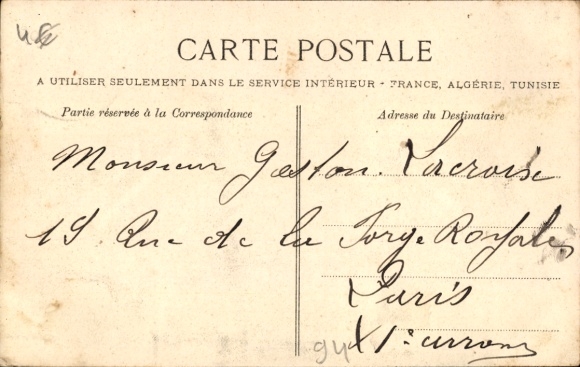 CARTE POSTALE
A UTILISER SEULEMENT DANS LE SERVICE INTÉRIEUR - FRANCE, ALGÉRIE, TUNISIE
Partie réservée à la Correspondance
Adresse du Destinataire
Monsieur Gaston Lacroix
19 Rue de la Forge Royale
Paris
XIe arron
94